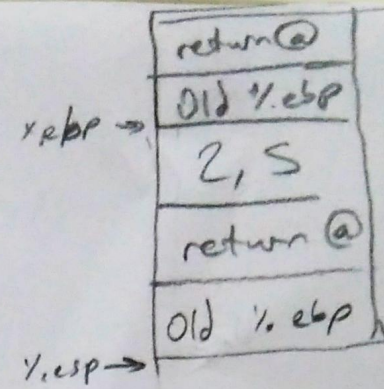 return @
Old %.ebp
%ebp →
2, 5
return @
Old %. ebp
%.esp →